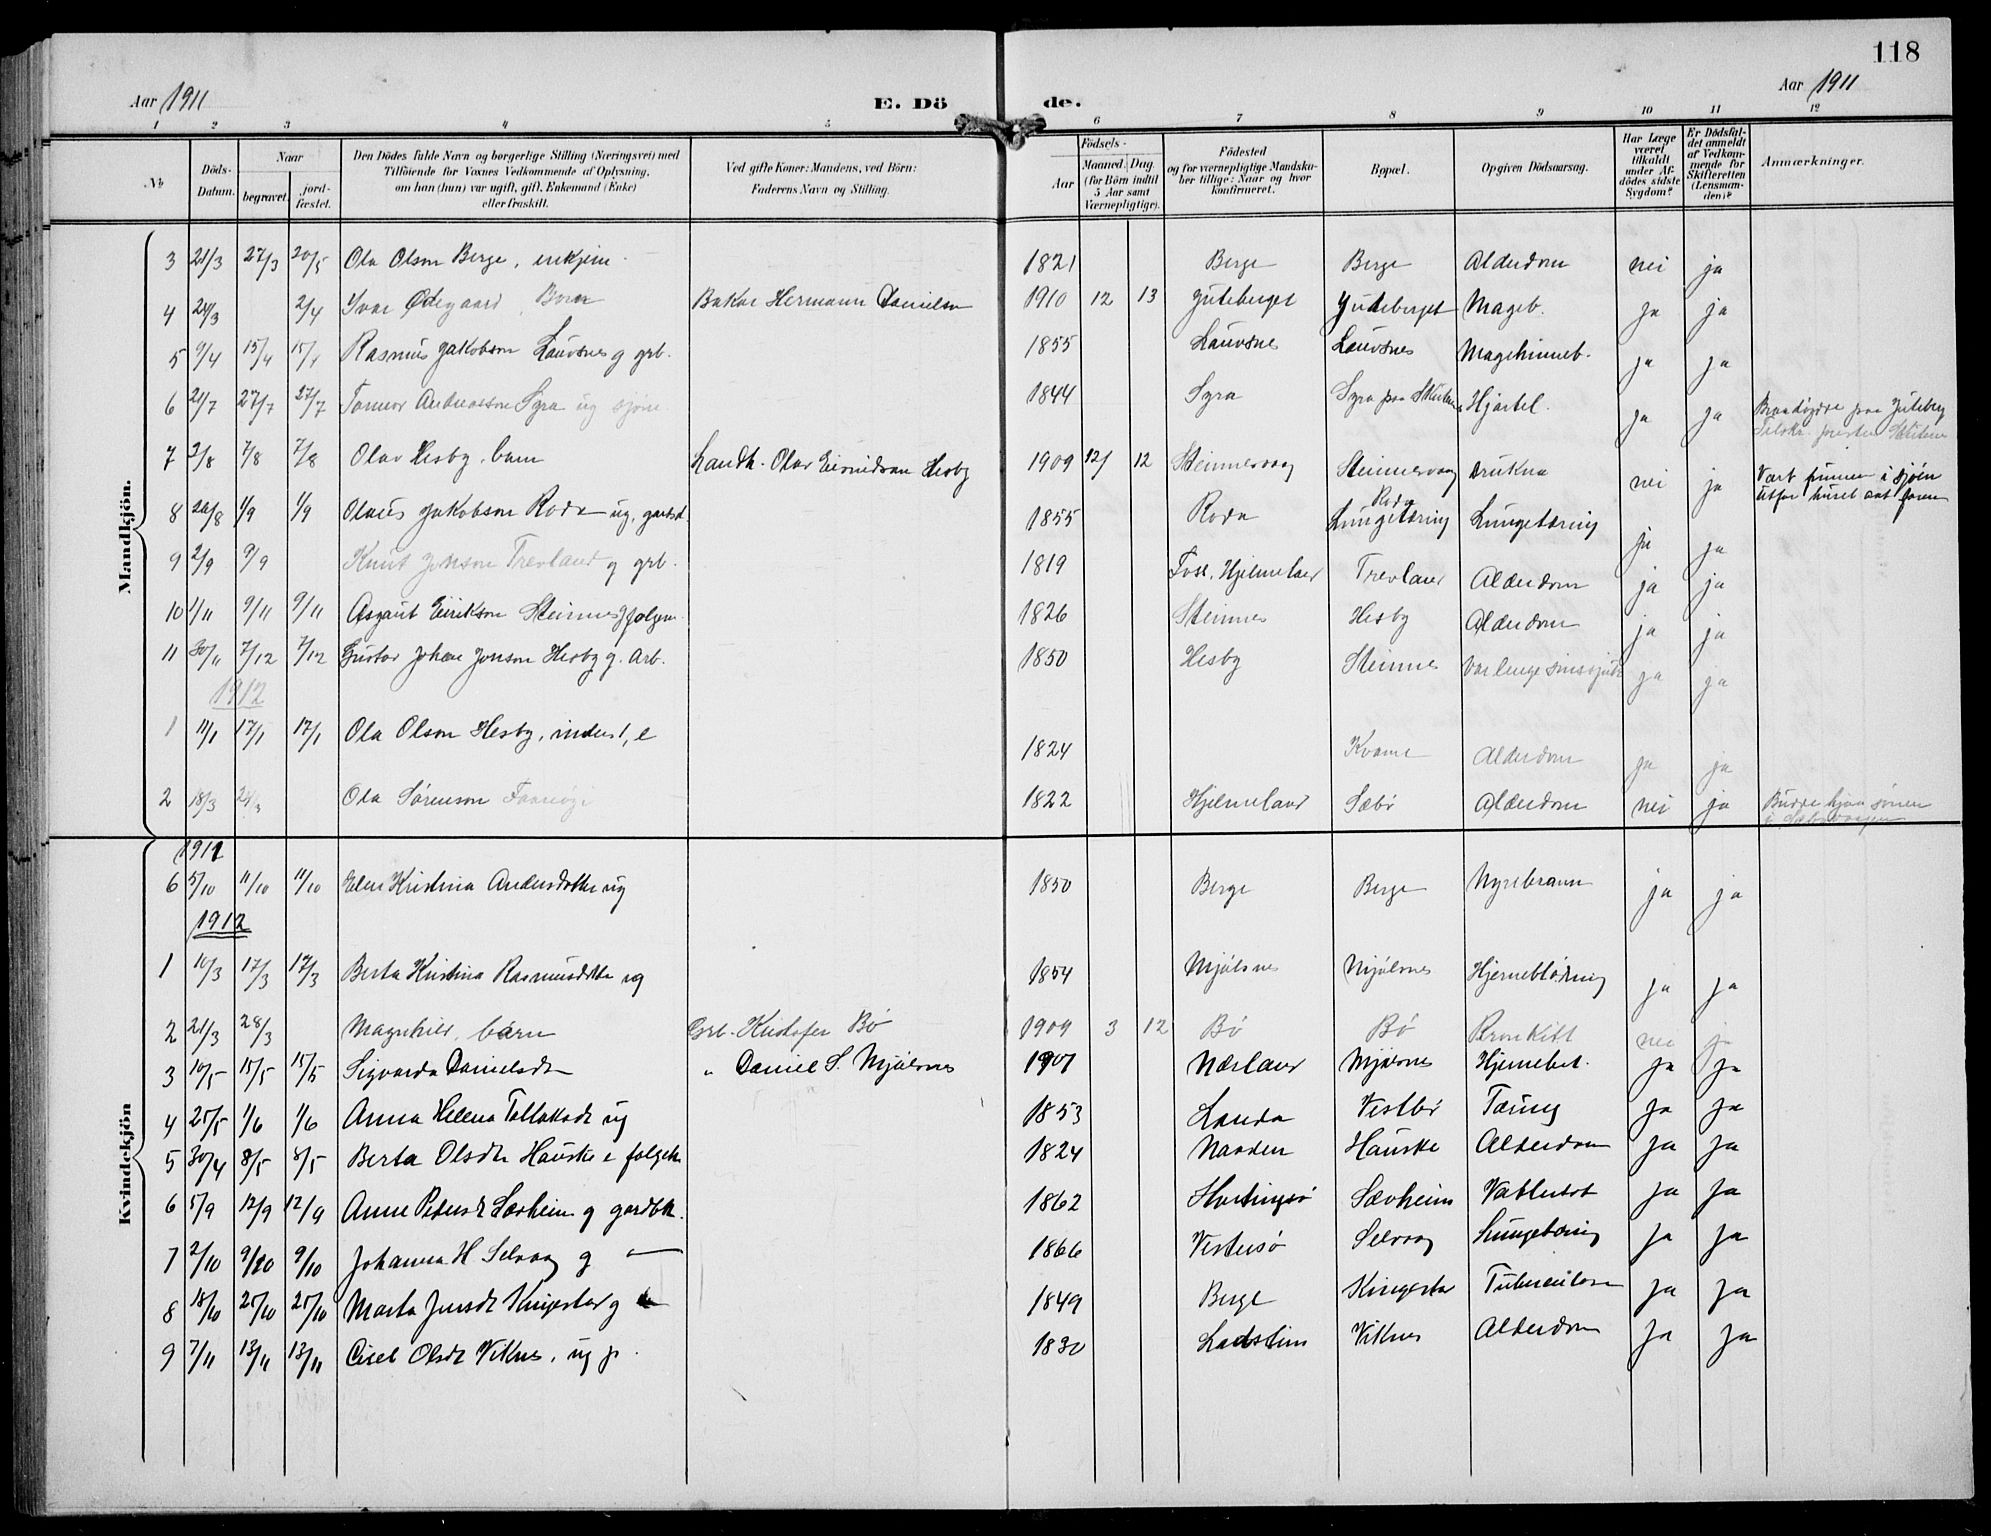 118
Aar 1911
E. Döde.
Aar 1911
1 2 3 4 5 6 7 8 9 10 11 12
No
Döds-Datum.
Naar begravet. jordfæstet.
Den Dödes fulde Navn og borgerlige Stilling (Næringsvei) med Tilföiende for Voxnes Vedkommende af Oplysning, om han (hun) var ugift, gift, Enkemand (Enke) eller fraskilt.
Ved gifte Koner: Mandens, ved Börn: Faderens Navn og Stilling.
Födsels-
Aar Maaned. Dag.
(for Börn indtil 5 Aar samt Værnepligtige).
Födested og for værnepligtige Mandskaber tillige: Naar og hvor konfirmeret.
Bopæl.
Opgiven Dödsaarsag.
Har Læge været tilkaldt under Afdödes sidste Sygdom?
Er Dödsfaldet anmeldt af Vedkommende for Skifteretten (Lensmanden)?
Anmærkninger.
Mandkjön.
3 21/3 27/3 20/5 Ola Olson Berge, enkjem. 1821 Berge Berge Alderdom nei ja
4 24/3 2/4 Ivar Ødegaard, Born Bakar Hermann Danielsen 1910 12 13 Juteberget Juteberget Mageb. ja ja
5 9/4 15/4 15/4 Rasmus Jakobson Lauvsnes g grb. 1855 Lauvsnes Lauvsnes Magehinneb. ja ja
6 21/7 27/7 27/7 Andreasson Syra ug sjøm. 1844 Syra Syra paa Hjartel. ja ja paa Juteberg
7 2/8 7/8 7/8 Olav Hesby, barn Landh. Olav Hesby 1909 12/ 12 Steinnesvaag Steinnesvaag Drukna nei ja Vart funnen i sjøen utfor huset aat faren
8 26/8 1/9 1/9 Olaus Jakobson Roda ug, gardst. 1855 Roda Roda Lungetæring Lungetæring ja ja
9 2/9 9/9 Knut Jonson Trevland g grb. 1819 Hjelmeland Trevland Alderdom ja ja
10 1/11 9/11 9/11 Asgaut Eirikson Steinnes g folgem. 1826 Steinnes Hesby Alderdom ja ja
11 30/11 7/12 7/12 Gustav Johan Jonson Hesby g. Arb. 1850 Hesby Steinnes Var lenge sinssjuk ja ja
1912
1 11/1 17/1 17/1 Ola Olson Hesby, inderst, e 1824 Kvame Alderdom ja ja
2 18/3 24/3 Ola Sørenson 1822 Hjelmeland Sæbø Alderdom nei ja Budde hjaa sonen
Kvindekjön
1911
6 5/10 11/10 11/10 Elen Kristina Andersdotter ug 1850 Berge Berge Nyrebrann ja ja
1912
1 10/3 17/3 17/3 Berta Kristina Rasmusdtter ug 1854 Mjølsnes Mjølsnes Hjerneblødning ja ja
2 21/3 28/3 Magnhild, barn Grb. Kristofer Bø 1909 3 12 Bø Bø Bronkitt nei ja
3 10/5 15/5 15/5 Sigvarda Danielsdt " Daniel S. Mjølsnes 1907 Nærland Mjølsnes Hjernebet. ja ja
4 25/5 1/6 1/6 Anna Helena Tollaksdt ug 1853 Landa Vestbø Tæring ja ja
5 30/4 8/5 8/5 Berta Olsdtr Hauske e folgek 1824 Naaden Hauske Alderdom ja ja
6 5/9 12/9 12/9 Anne Pedersdt Sævheim g gardbk. 1862 Sævheim Vattersot ja ja
7 2/10 9/10 9/10 Johanna H Selvaag g — 1866 Vestersø Selvaag Lungetæring ja ja
8 18/10 25/10 25/10 Marta Jensdt Kingestad g 1849 Berge Kingestad Tuberculose ja ja
9 7/11 13/11 13/11 Cisel Olsdt Viknes, ug 1830 Ladstein Viknes Alderdom ja ja